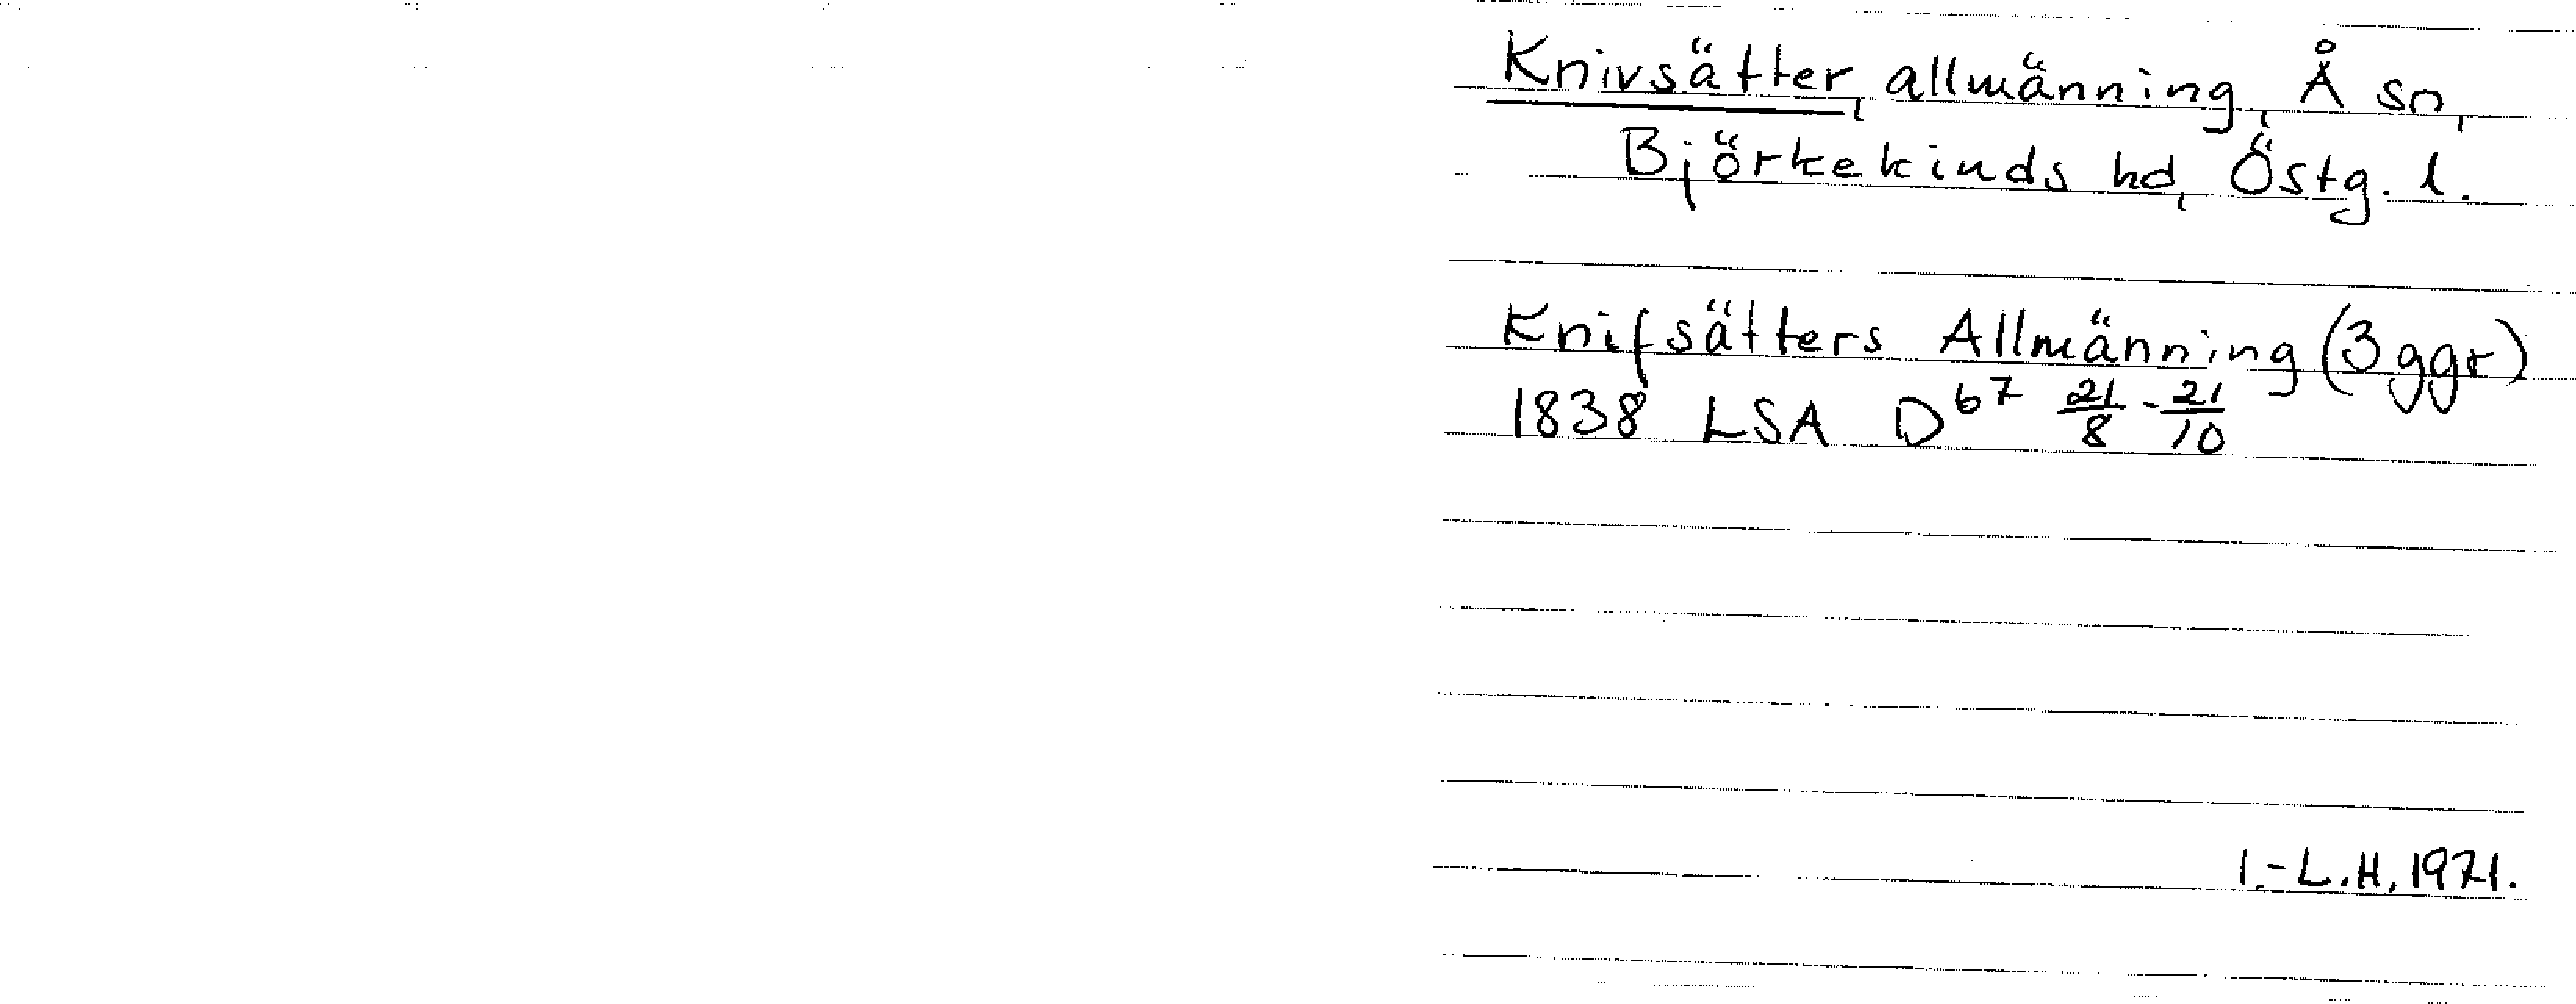 Knivsätter, allmänning, Å sn,
Björkekinds hd, Östg. l.
Knifsätters Allmänning (3 ggr)
1838 LSA D⁶⁷ 21/8 - 21/10
I.-L.H. 1971.